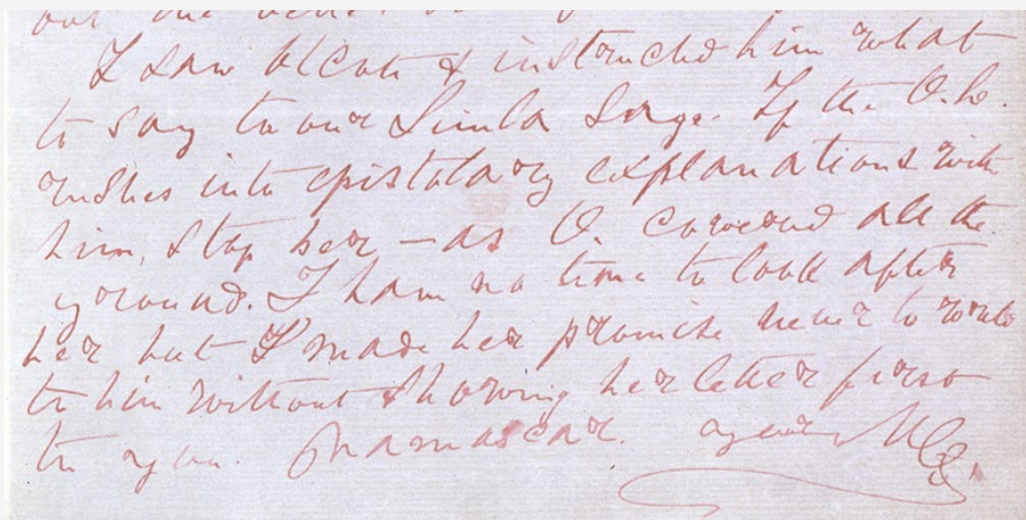 but the
I saw Olcott & instructed him what
to say to our Simla Sage. If the O.L.
rushes into epistolary explanations with
him, stop her — as O. covered all the
ground. I have no time to look after
her but I made her promise never to write
to him without showing her letter first
to you. Namascar. yours